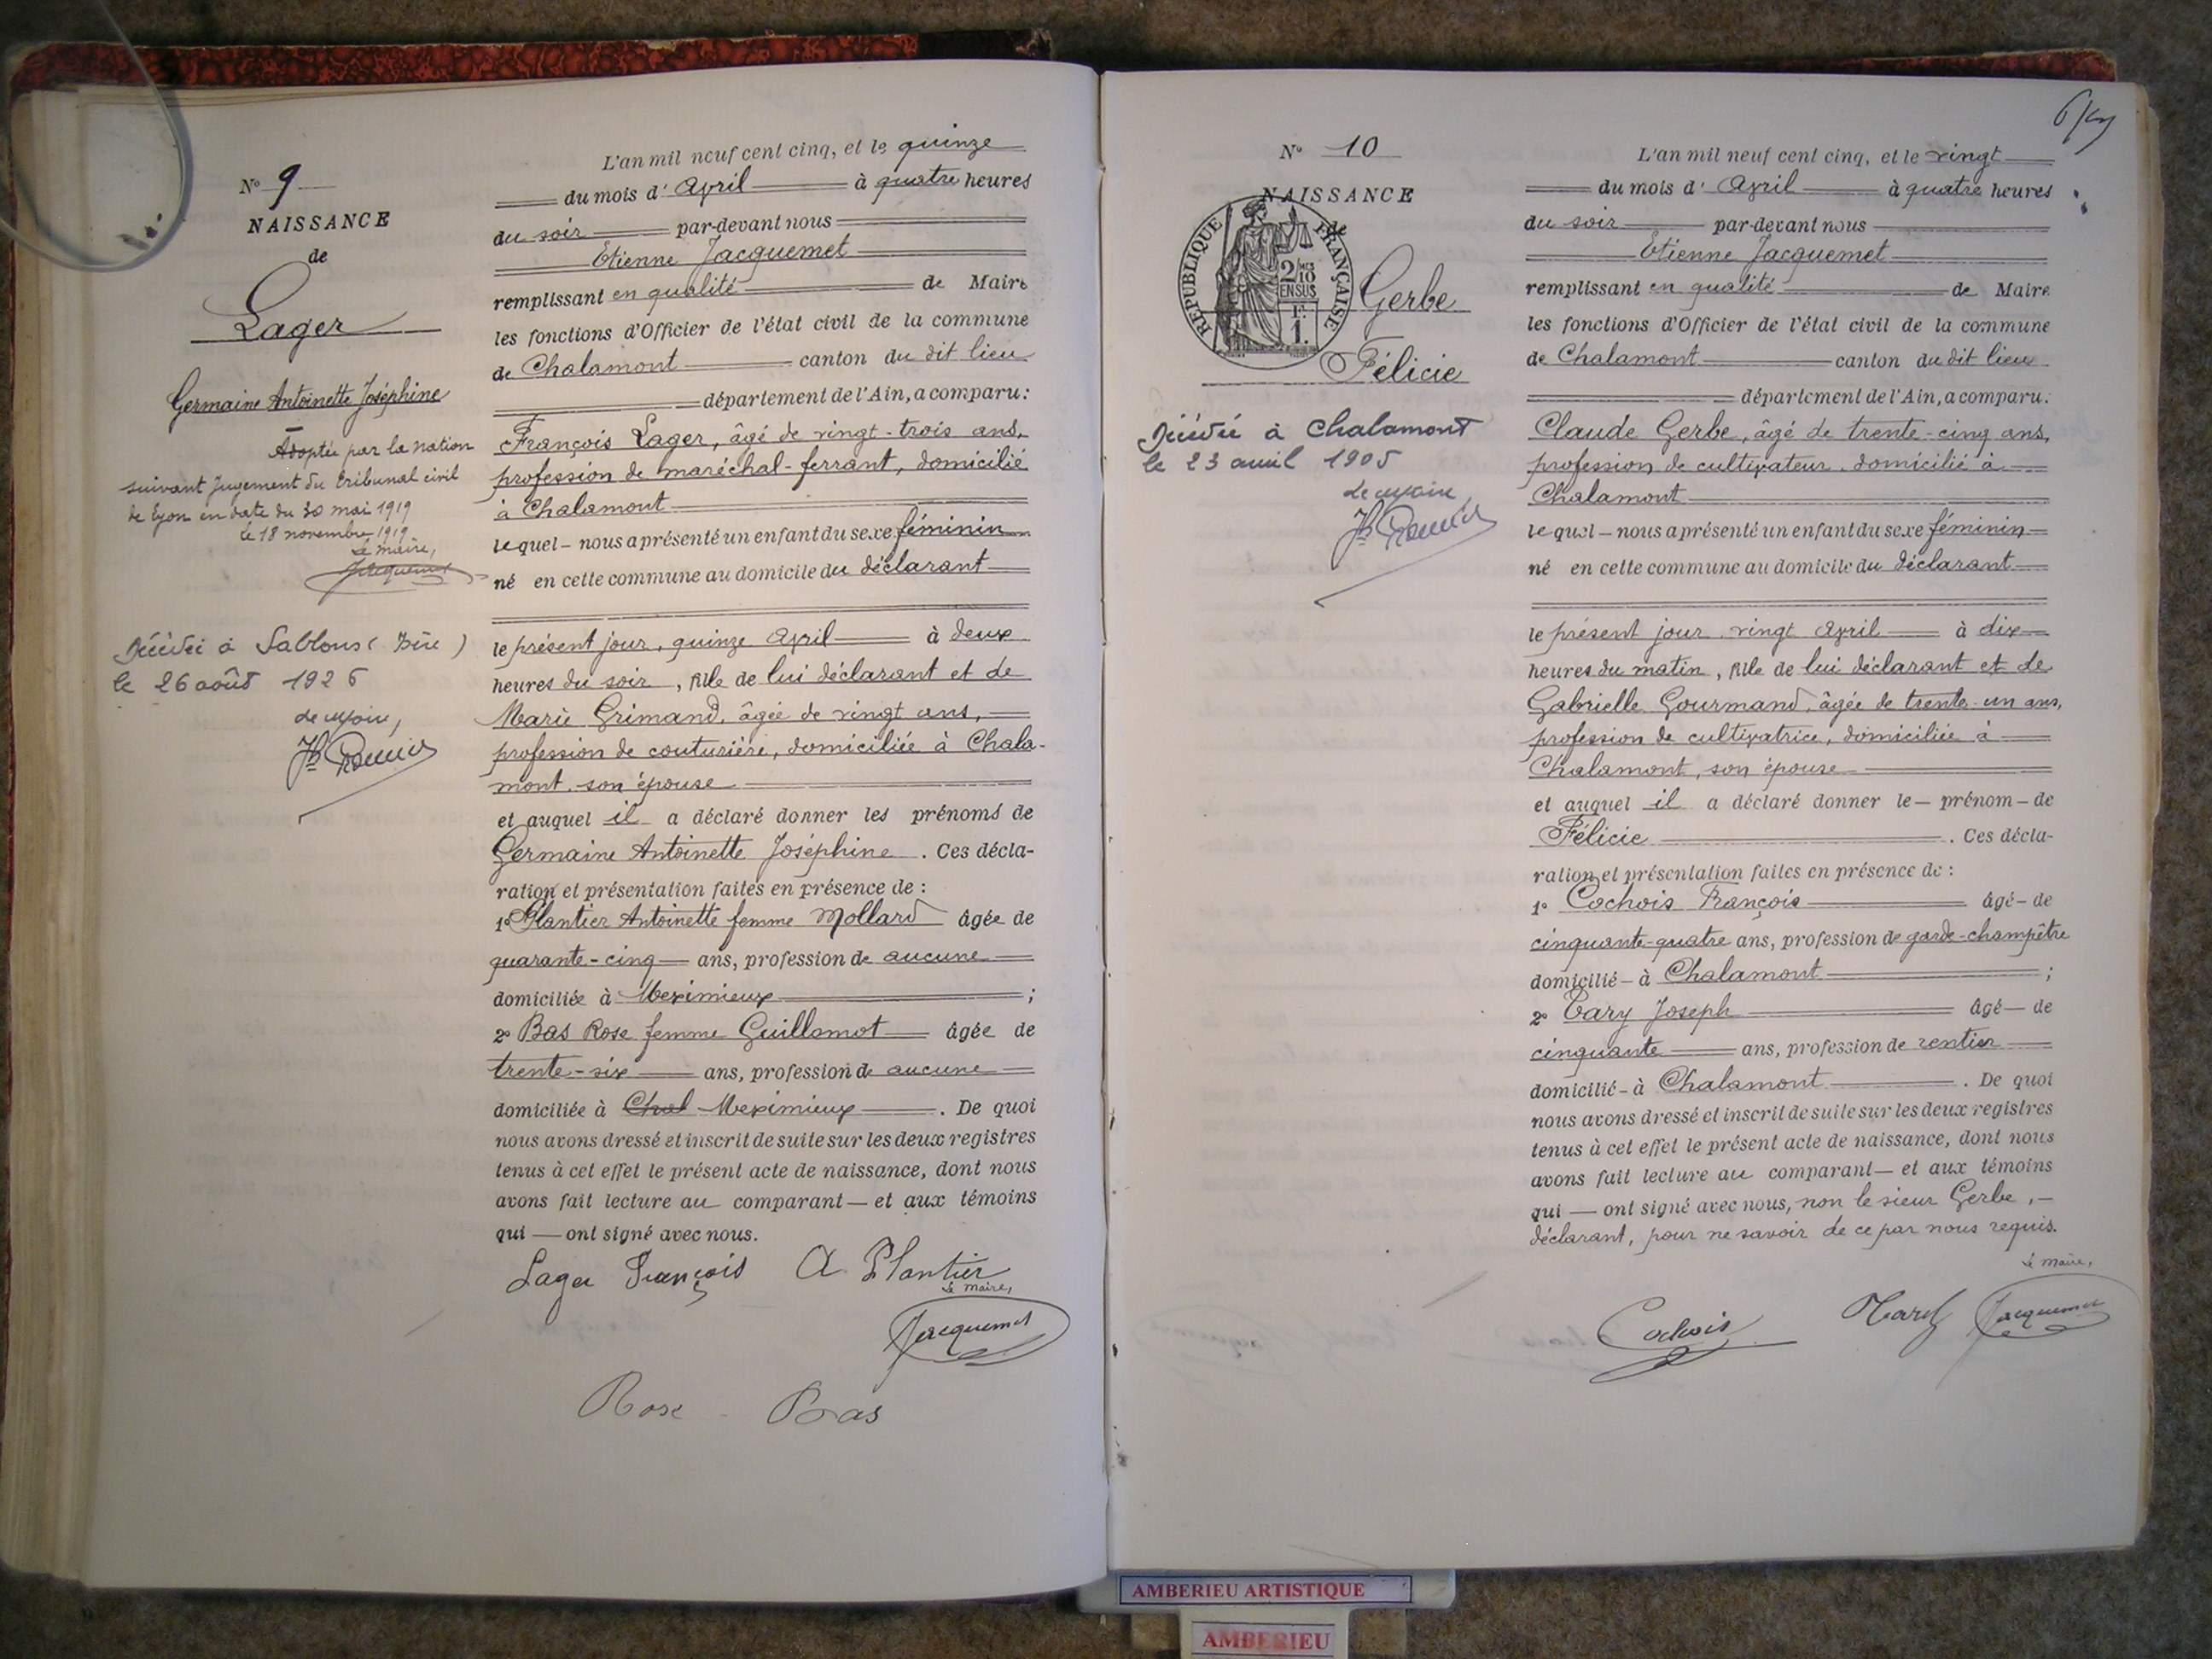 N° 9
NAISSANCE
de
Lager
Germaine Antoinette Joséphine
Adoptée par la nation
suivant Jugement du tribunal civil
de Lyon en date du 30 mai 1919
le 18 novembre 1919
Le maire,
Jacquemet
Décédée à Sablons (Isère)
le 26 août 1926
Le Maire,
L'an mil neuf cent cinq, et le quinze
du mois d' Avril à quatre heures
du soir par-devant nous
Etienne Jacquemet
remplissant en qualité de Maire
les fonctions d'Officier de l'état civil de la commune
de Chalamont canton du dit lieu
département de l'Ain, a comparu:
François Lager, âgé de vingt-trois ans,
profession de maréchal-ferrant, domicilié
à Chalamont
lequel - nous a présenté un enfant du sexe féminin
né en cette commune au domicile du déclarant
le présent jour, quinze Avril à deux
heures du soir, fille de lui déclarant et de
Marie Grimand, âgée de vingt ans,
profession de couturière, domiciliée à Chala-
mont, son épouse
et auquel il a déclaré donner les prénoms de
Germaine Antoinette Joséphine. Ces décla-
ration et présentation faites en présence de :
1° Plantier Antoinette femme Mollard âgée de
quarante-cinq ans, profession de aucune
domiciliée à Meximieux ;
2° Bas Rose femme Guillomot âgée de
trente-six ans, profession de aucune
domiciliée à Chal Meximieux. De quoi
nous avons dressé et inscrit de suite sur les deux registres
tenus à cet effet le présent acte de naissance, dont nous
avons fait lecture au comparant — et aux témoins
qui — ont signé avec nous.
Lager François A. Plantier
Le maire,
Jacquemet
Rose Bas
N° 10
NAISSANCE
de
RÉPUBLIQUE FRANÇAISE
2/10
EN SUS
1.
Gerbe
Félicie
Décédée à Chalamont
le 23 avril 1905
Le Maire,
L'an mil neuf cent cinq, et le vingt
du mois d' Avril à quatre heures
du soir par-devant nous
Etienne Jacquemet
remplissant en qualité de Maire
les fonctions d'Officier de l'état civil de la commune
de Chalamont canton du dit lieu
département de l'Ain, a comparu:
Claude Gerbe, âgé de trente-cinq ans,
profession de cultivateur, domicilié à
Chalamont
lequel — nous a présenté un enfant du sexe féminin
né en cette commune au domicile du déclarant
le présent jour, vingt Avril à dix
heures du matin, fille de lui déclarant et de
Gabrielle Gourmand, âgée de trente-un ans,
profession de cultivatrice, domiciliée à
Chalamont, son épouse
et auquel il a déclaré donner le — prénom — de
Félicie. Ces décla-
ration et présentation faites en présence de :
1° Cochois François âgé - de
cinquante-quatre ans, profession de garde-champêtre
domicilié - à Chalamont ;
2° Tary Joseph âgé — de
cinquante ans, profession de rentier
domicilié - à Chalamont. De quoi
nous avons dressé et inscrit de suite sur les deux registres
tenus à cet effet le présent acte de naissance, dont nous
avons fait lecture au comparant — et aux témoins
qui — ont signé avec nous, non le sieur Gerbe,
déclarant, pour ne savoir de ce par nous requis.
Le maire,
Cochois Tary Jacquemet
AMBERIEU ARTISTIQUE
AMBERIEU